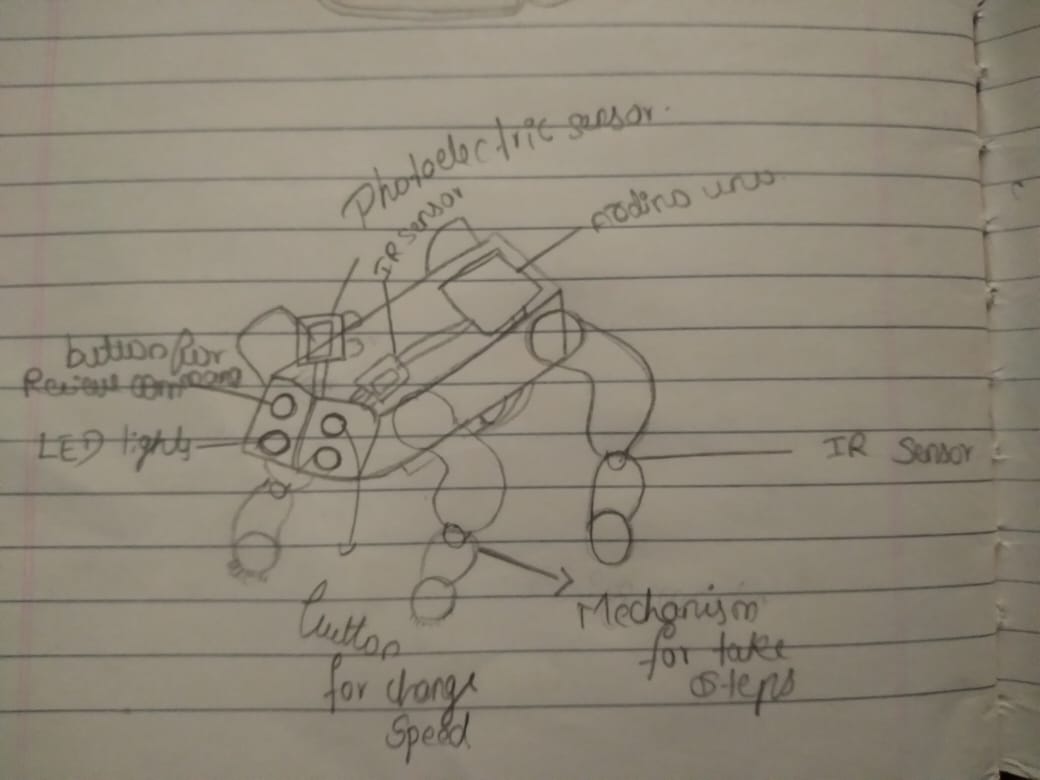 Photoelectric sensor.
IR Sensor
Ardino uno
button for
Recieve command
LED lights
IR Sensor
button
for change
Speed
Mechanism
for take
steps